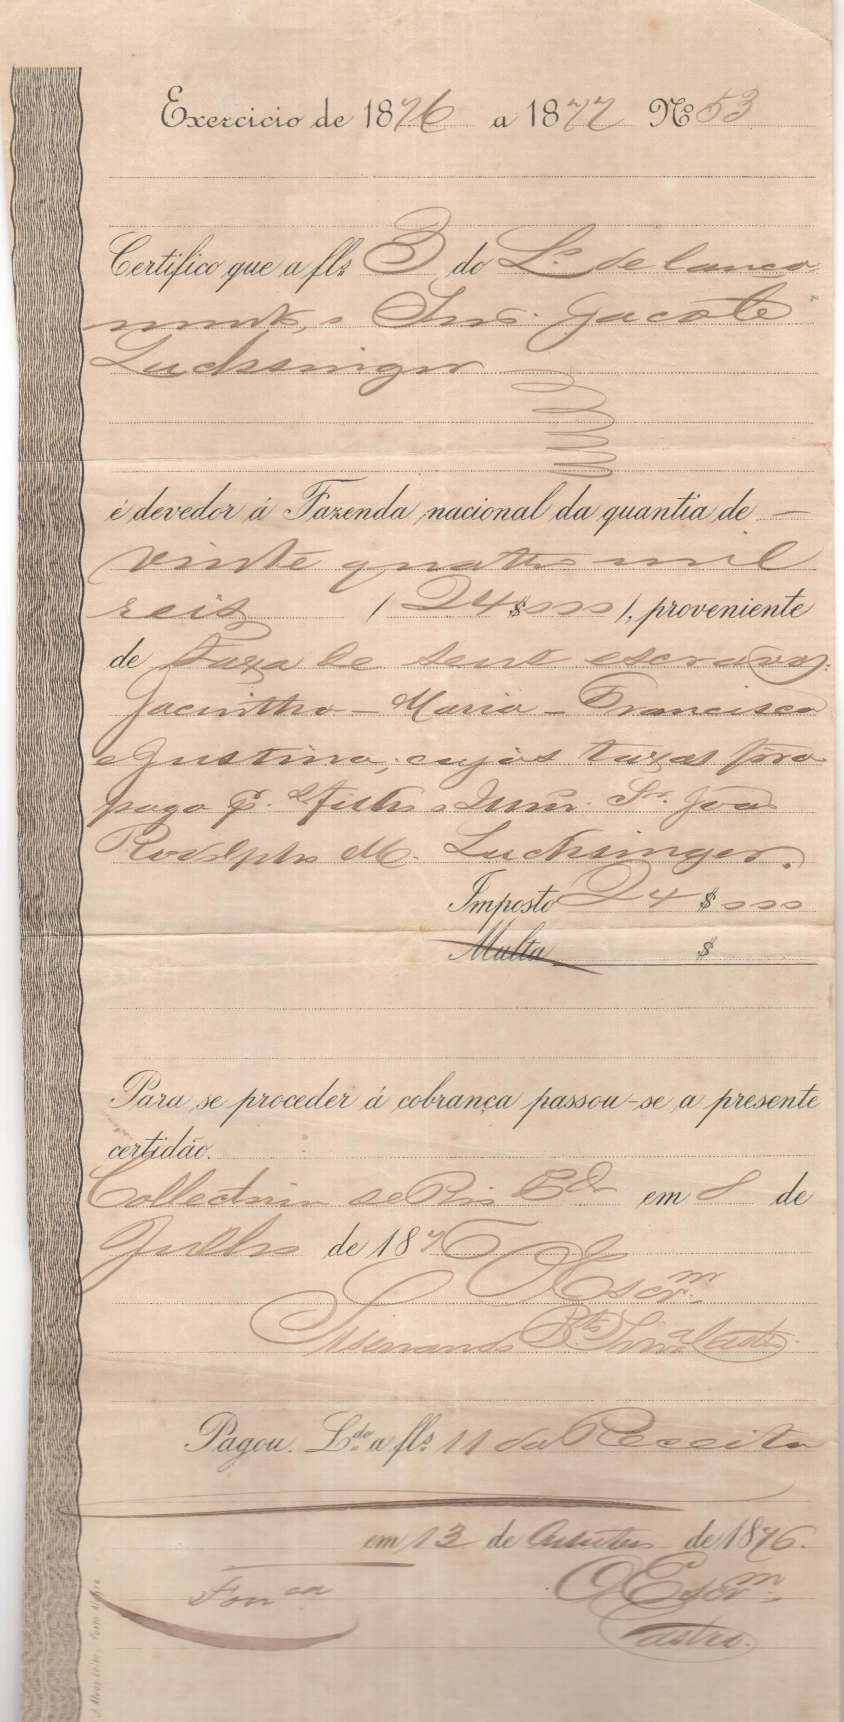 Exercicio de 1876 a 1877 Nº 53
Certifico que a fls 3 do Lº de lança
mento, o Snr. Jacob
Luchsinger
é devedor á Fazenda nacional da quantia de —
vinte quatro mil
reis (24$000), proveniente
de taxa de seus escravos:
Jacintho — Maria — Francisca
e Justina; cujas taxas
pago Snr. João
Rodolpho M. Luchsinger.
Imposto 24$000
Multa $
Para se proceder á cobrança passou-se a presente
certidão.
Collectoria de Rio em 8 de
Julho de 1876
O Escrm
Pagou. Ldo a fls 11 da Receita
em 13 de de 1876.
Fonca
O Escrm
Castro.
J. Alves Leite, Porto Alegre